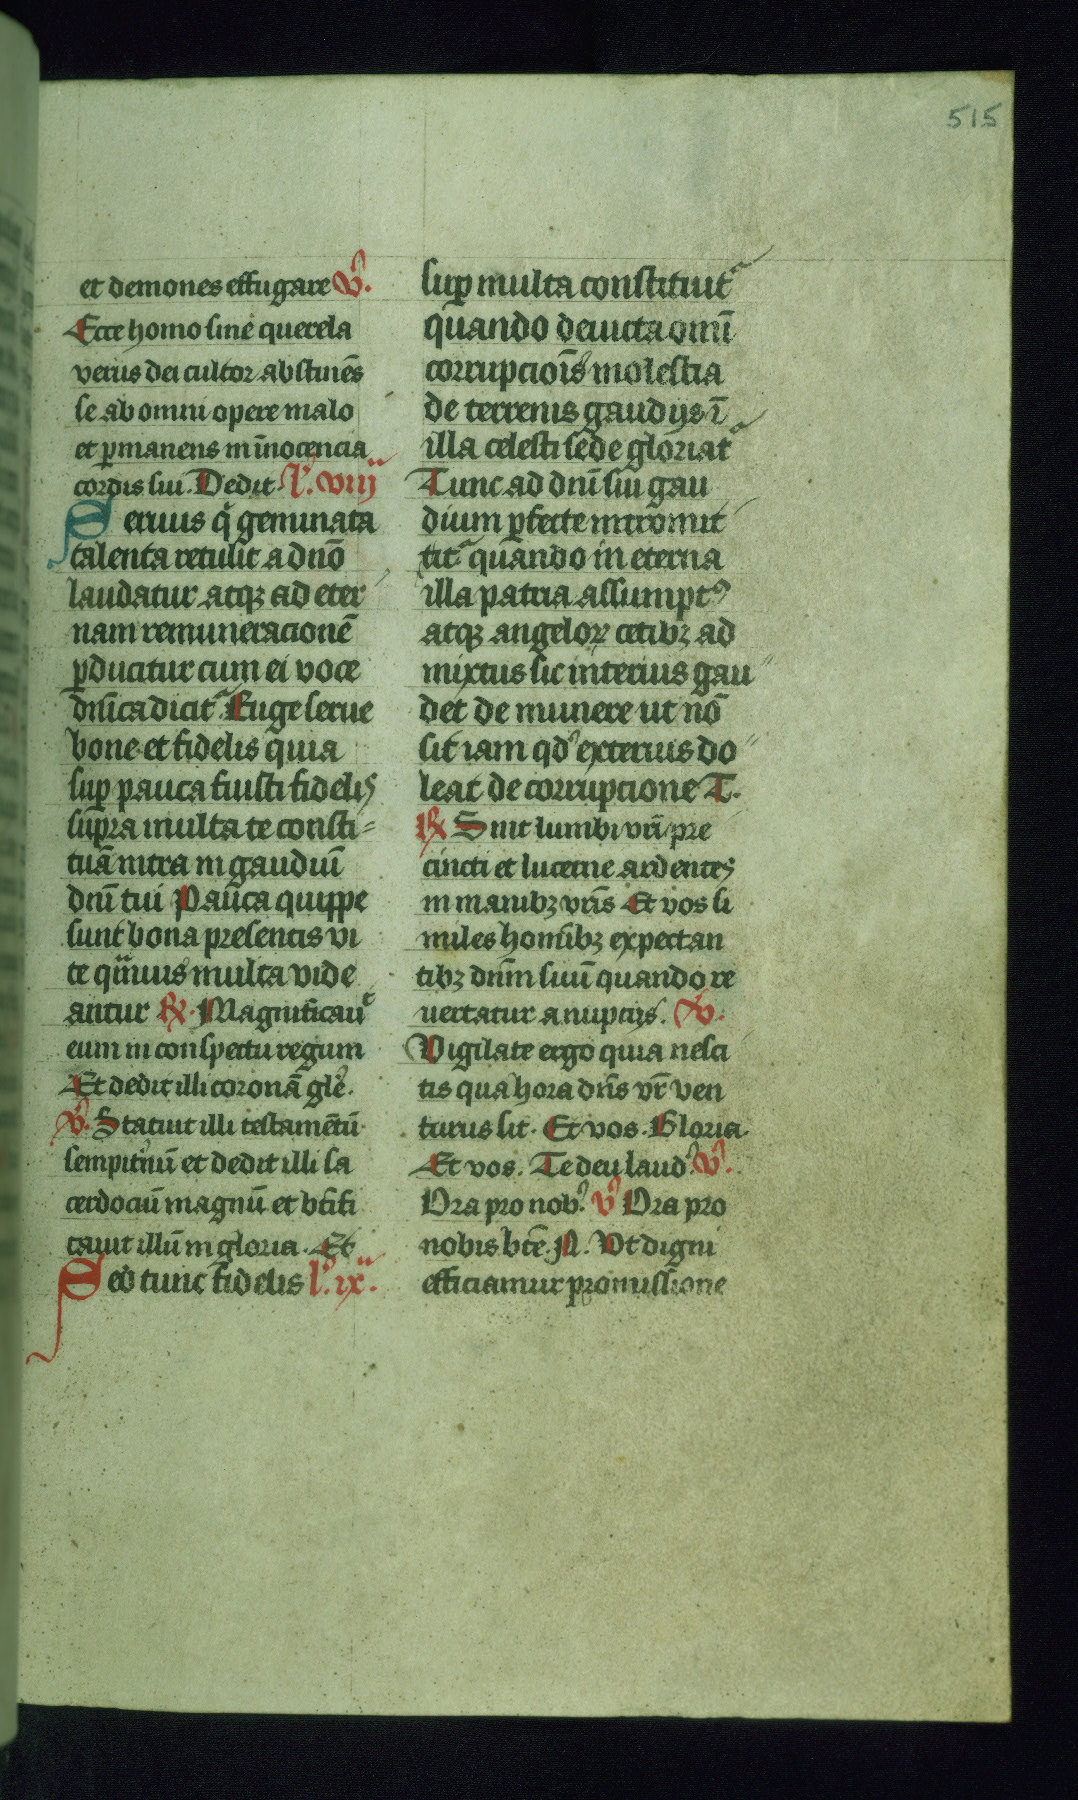 515
et demones effugare V̉.
Ecce homo sine querela
verus dei cultor abstinēs
se ab omni opere malo
et ꝑmanens in īnocencia
cordis sui. Dedit. l̓. viij
Seruus q̓ geminata
talenta retulit a dnō
laudatur atqꝫ ad eter
nam remuneracionē
ꝑducitur cum ei voce
dn̄ica dicit᷑ Euge serue
bone et fidelis quia
suꝑ pauca fuisti fidelis
supra multa te consti⸗
tuā intra in gaudiū
dnī tui Pauca quippe
sunt bona presentis vi
te qm̄uis multa vide
antur ℟. Magnificau᷑
eum in conspectu regum
Et dedit illi coronā gle᷑.
V̉. Statuit illi testamētū
sempit̓nū et dedit illi sa
cerdociū magnū et btīfi
cauit illū in gloria. Et
Seđ tunc fidelis l̓. ix.
suꝑ multa constituit᷑
quando deuicta omī
corrupciōis molestia
de terrenis gaudijs ī
illa celesti sede gloriat᷑
Tunc ad dnī sui gau
dium ꝑfecte intromit
tit᷑ quando in eterna
illa patria assumptꝰ
atqꝫ angeloꝝ cetibꝫ ad
mixtus sic interius gau
det de munere ut nō
sit iam qd̓ exterius do
leat de corrupcione T.
℟ Sint lumbi vrī pre
cincti et lucerne ardentes
in manibꝫ vrīs Et vos si
miles homībꝫ expectan
tibꝫ dnm̄ suū quando re
uertatur a nupcijs. V̉.
Vigilate ergo quia nesci
tis qua hora dn̄s vr̄ ven
turus sit. Et vos. Gloria
Et vos. Te deū laud᷑. V̉.
Ora pro nob᷑. V̉ Ora pro
nobis btē. N. Vt digni
efficiamur promissione